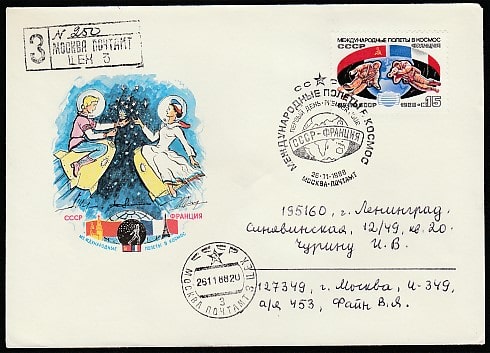 З
N 250
МОСКВА ПОЧТАМТ
ЦЕХ 3
МЕЖДУНАРОДНЫЕ ПОЛЕТЫ В КОСМОС
СССР ФРАНЦИЯ
1988 15
СССР
МЕЖДУНАРОДНЫЕ ПОЛЕТЫ В КОСМОС
ПЕРВЫЙ ДЕНЬ
СССР-ФРАНЦИЯ
26·11·1988
МОСКВА-ПОЧТАМТ
СССР ФРАНЦИЯ
МЕЖДУНАРОДНЫЕ ПОЛЕТЫ В КОСМОС
195160, г. Ленинград,
Синявинская, 12/49, кв. 20.
Чурину И. В.
СССР
26118820
МОСКВА ПОЧТАМТ ЦЕХ 3
З
127349, г. Москва, И-349,
а/я 453, Файн В.Я.